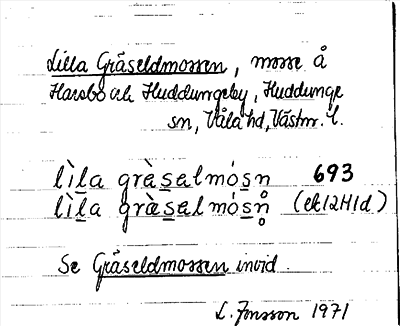 Lilla Gräseldmossen, mosse å
Harsbo och Huddungeby, Huddunge
sn, Våla hd, Västm. l.
lìl̲a gràs̲almós̲n̥ 693
lìl̲a græ̀s̲almós̲n̥ (ek 12H1d)
Se Gräseldmossen invid.
L. Jonsson 1971